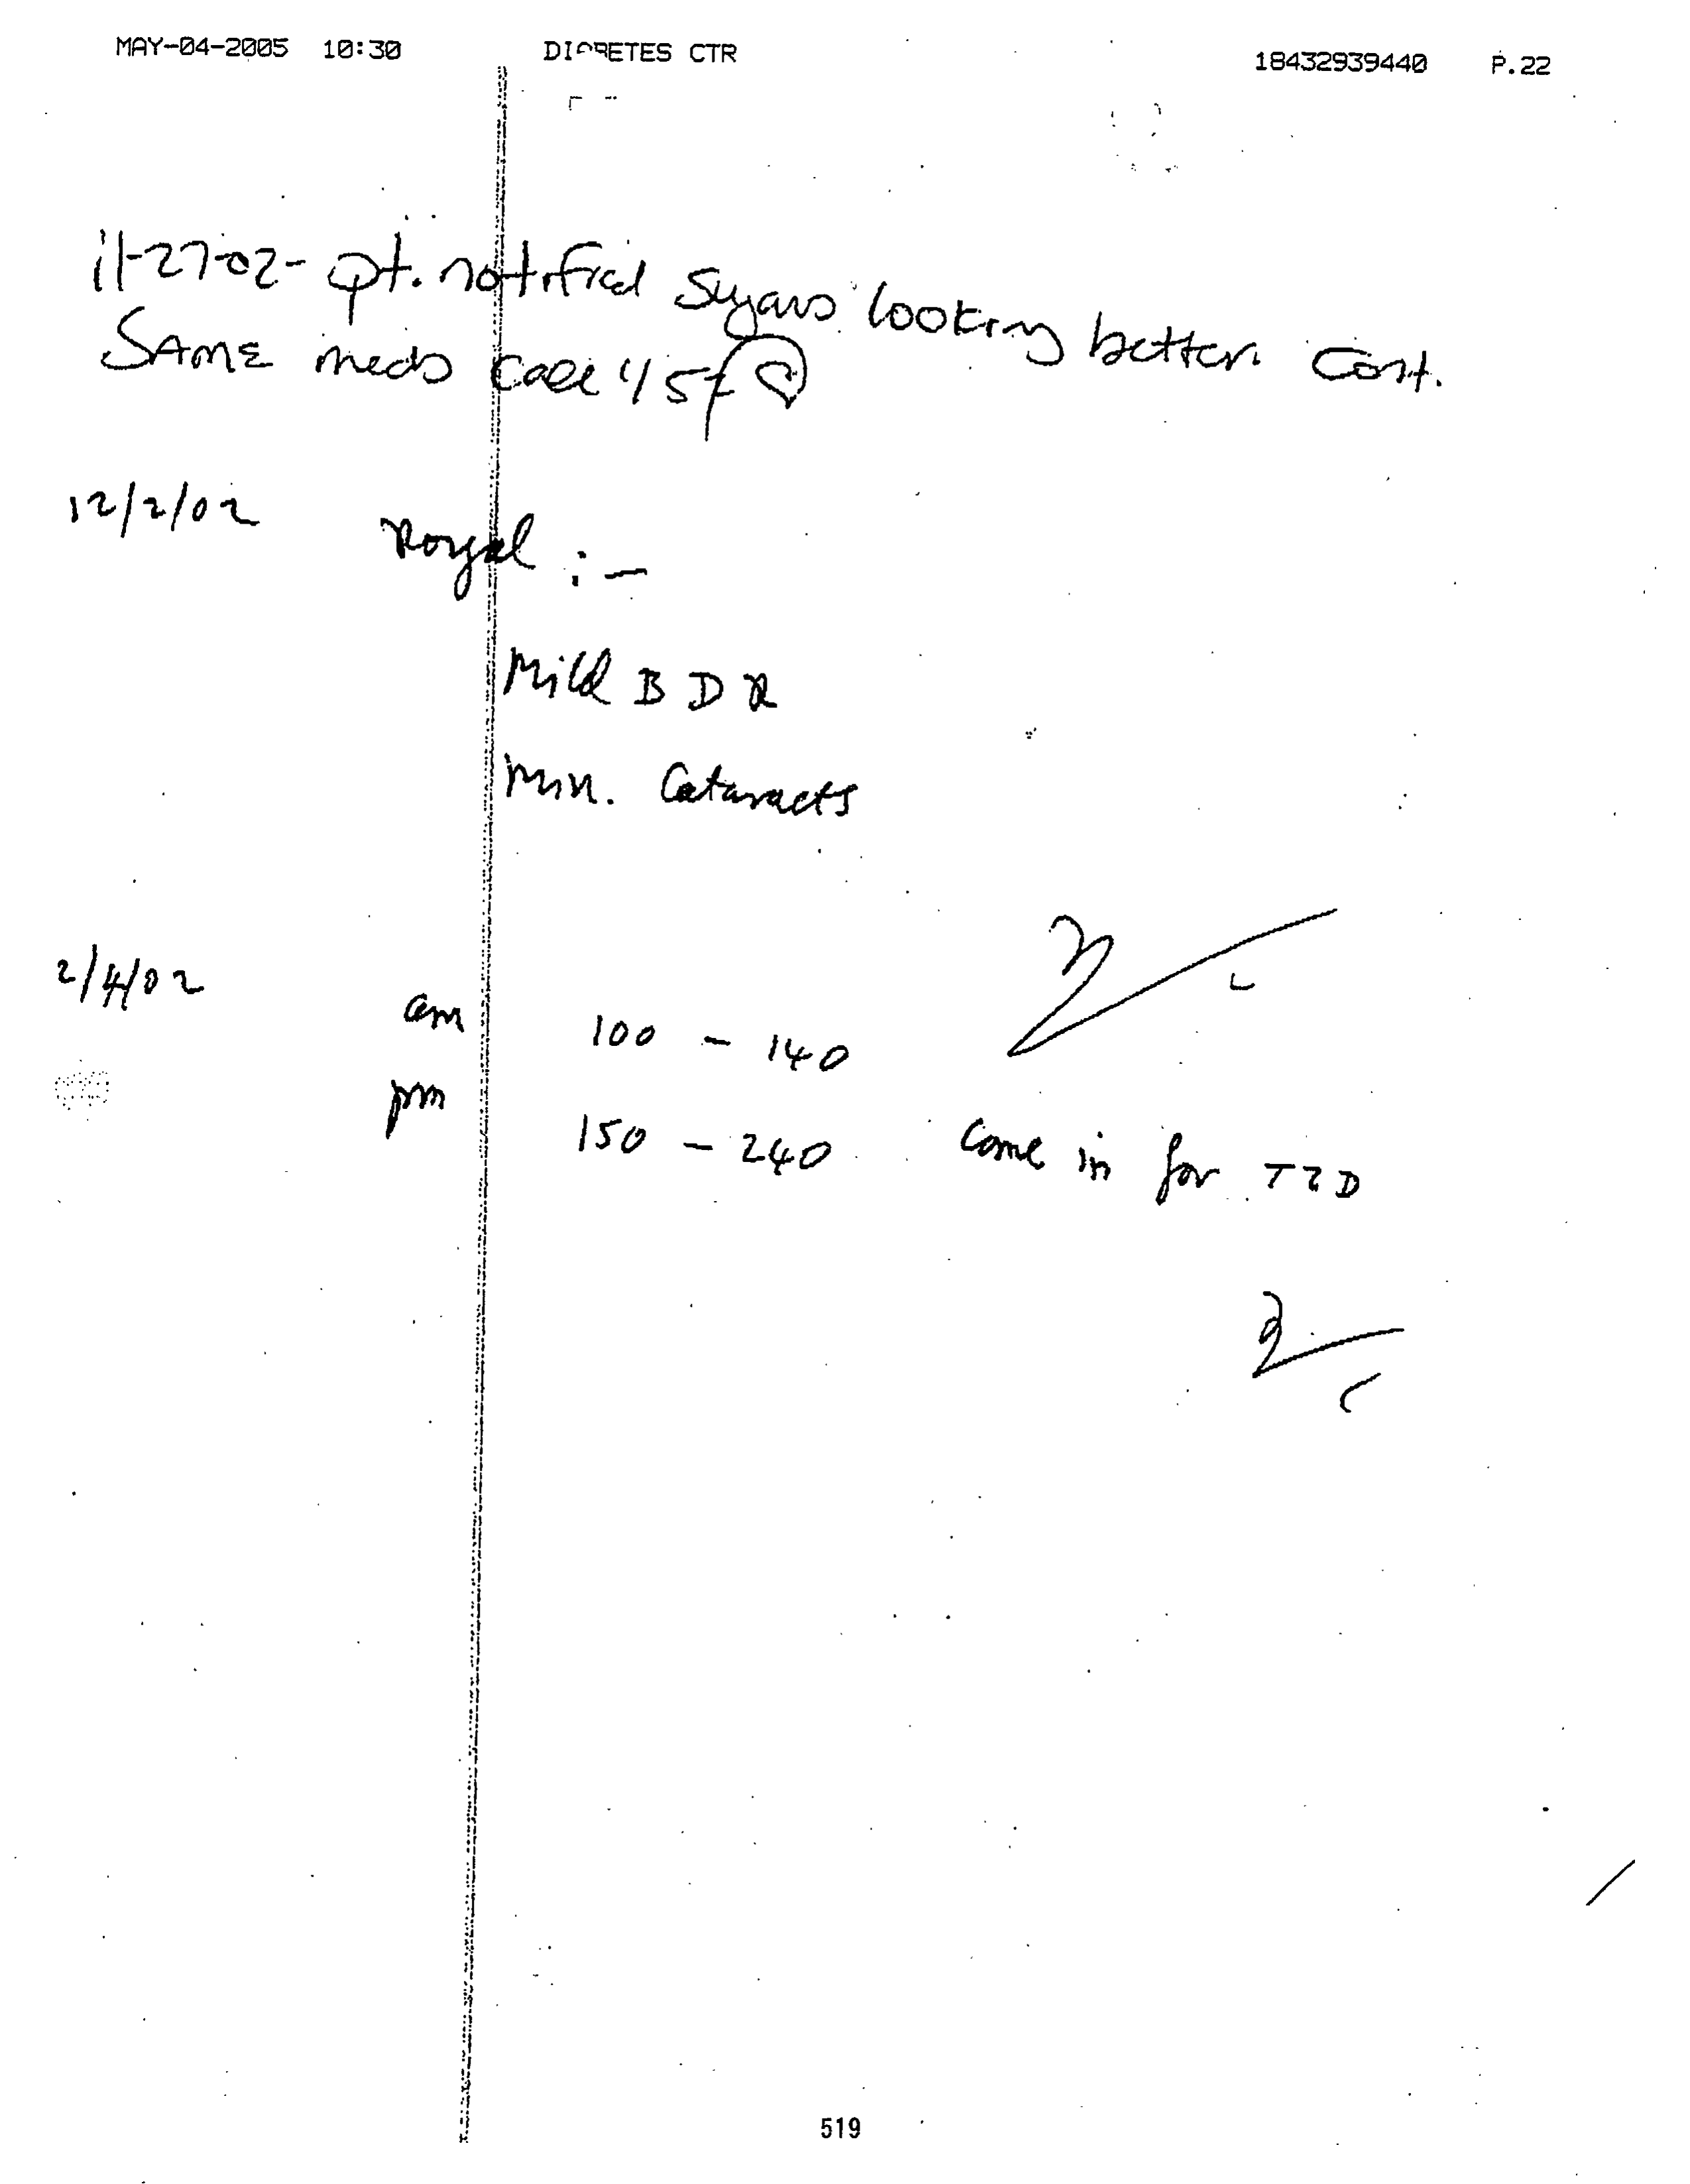 MAY-04-2005 10:30 DIABETES CTR 18432939440 P.22
11-27-02- pt. notified sugars looking better. Cont.
SAME meds call 1/5
12/2/02 Royal :-
Mild B D R
Min. Cataracts
2/4/02 am 100 - 140
pm 150 - 240 Come in for TZD
519